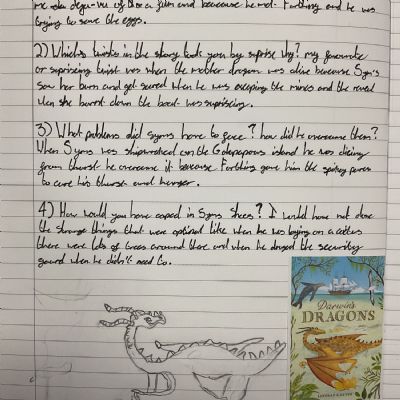 me deja-vu of a film and because he met Farthing and he was
trying to save the eggs.
2) Which twists in the story took you by suprise Why? my favourite
or suprising twist was when the mother dragon was alive because Syms
saw her burn and get scared when he was escaping the mines and the reveal
when she burnt down the boat was suprising.
3) What problems did syms have to face? how did he overcome them?
When Syms was shipwrecked on the Galapagous island he was dieing
from thurst he overcame it because Farthing gave him the spikey pares
to cure his thurst and hunger.
4) How would you have coped in Syms shoes? I would have not done
the strange things that were optional like when he was laying on a cactus
there were lots of areas around there and when he drugged the security
guard when he didn't need to.
Darwin's
DRAGONS
LINDSAY GALVIN